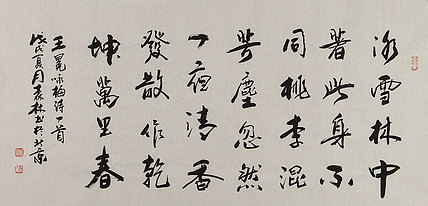 冰雪林中
著此身不
同桃李混
芳塵忽然
一夜清香
發散作乾
坤萬里春
王冕咏梅诗一首
戊戌夏月袁林书於北京